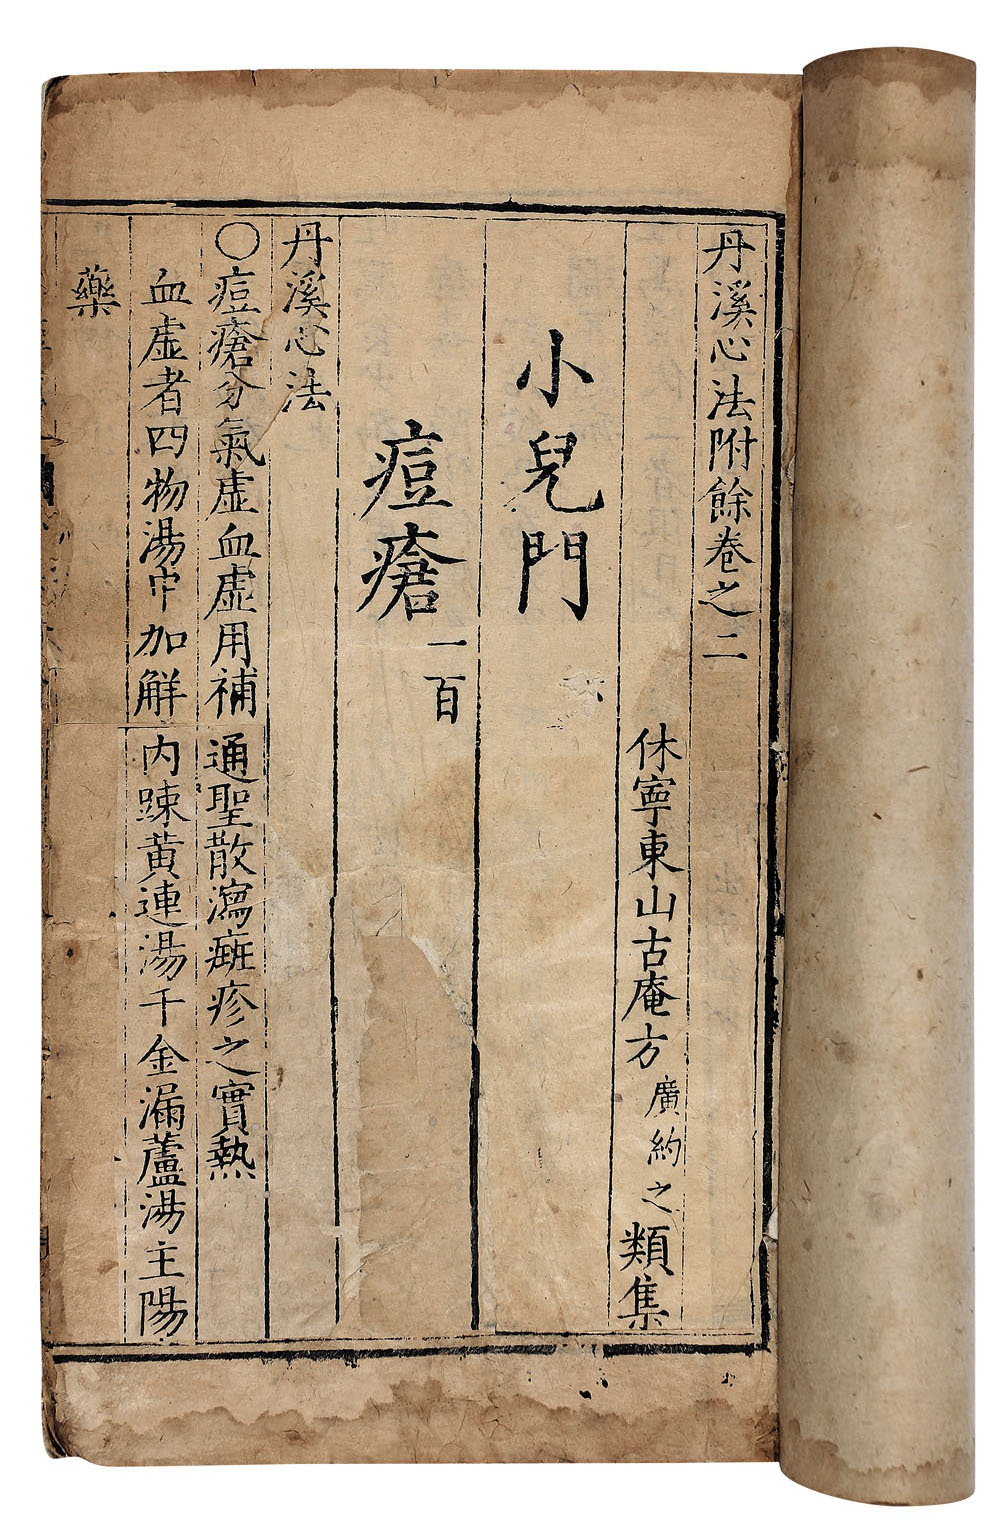 丹溪心法附餘卷之二
休寧東山古庵方廣約之類集
小兒門
痘瘡一百
丹溪心法
〇痘瘡分氣虛血虛用補 通聖散瀉癍疹之實熱
血虛者四物湯中加解 內踈黃連湯千金漏蘆湯主陽
藥